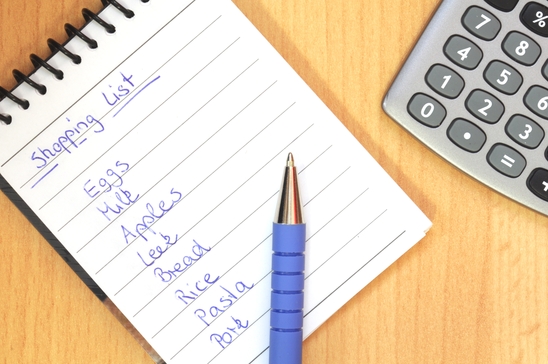 Shopping List
Eggs
Milk
Apples
Leek
Bread
Rice
Pasta
Pork
7
8
%
4
5
6
1
2
3
0
•
=
+